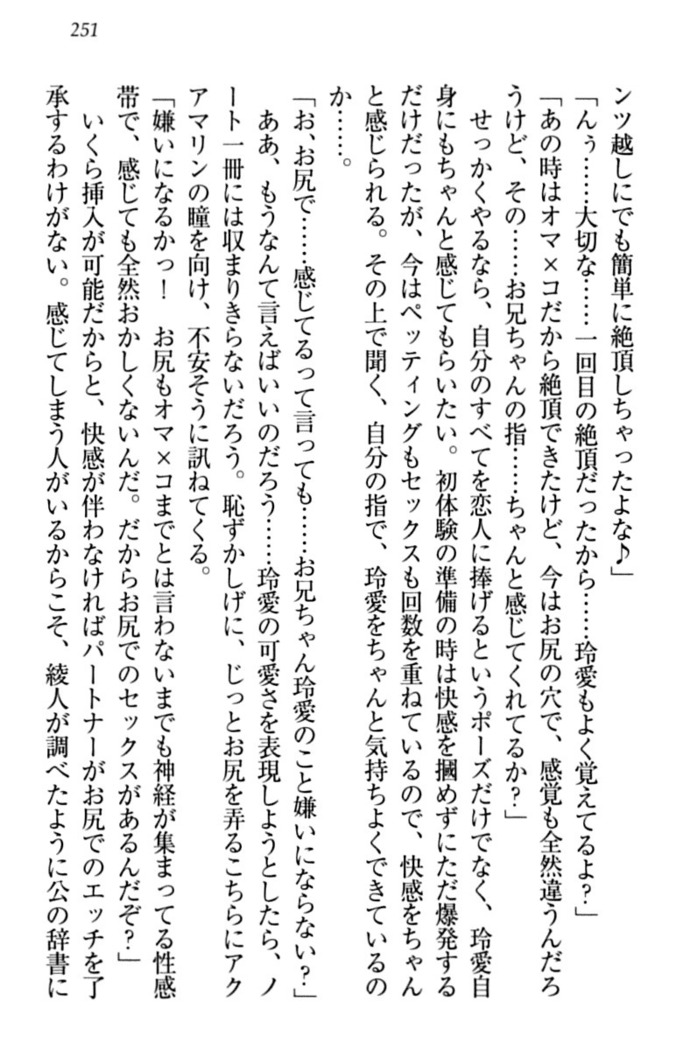 251
ンツ越しにでも簡単に絶頂しちゃったよな♪」
「んぅ……大切な……一回目の絶頂だったから……玲愛もよく覚えてるよ?」
「あの時はオマ×コだから絶頂できたけど、今はお尻の穴で、感覚も全然違うんだろ
うけど、その……お兄ちゃんの指……ちゃんと感じてくれてるか?」
せっかくやるなら、自分のすべてを恋人に捧げるというポーズだけでなく、玲愛自
身にもちゃんと感じてもらいたい。初体験の準備の時は快感を摑めずにただ爆発する
だけだったが、今はペッティングもセックスも回数を重ねているので、快感をちゃん
と感じられる。その上で聞く、自分の指で、玲愛をちゃんと気持ちよくできているの
か……。
「お、お尻で……感じてるって言っても……お兄ちゃん玲愛のこと嫌いにならない?」
ああ、もうなんて言えばいいのだろう……玲愛の可愛さを表現しようとしたら、ノ
ート一冊には収まりきらないだろう。恥ずかしげに、じっとお尻を弄るこちらにアク
アマリンの瞳を向け、不安そうに訊ねてくる。
「嫌いになるかっ! お尻もオマ×コまでとは言わないまでも神経が集まってる性感
帯で、感じても全然おかしくないんだ。だからお尻でのセックスがあるんだぞ?」
いくら挿入が可能だからと、快感が伴わなければパートナーがお尻でのエッチを了
承するわけがない。感じてしまう人がいるからこそ、綾人が調べたように公の辞書に